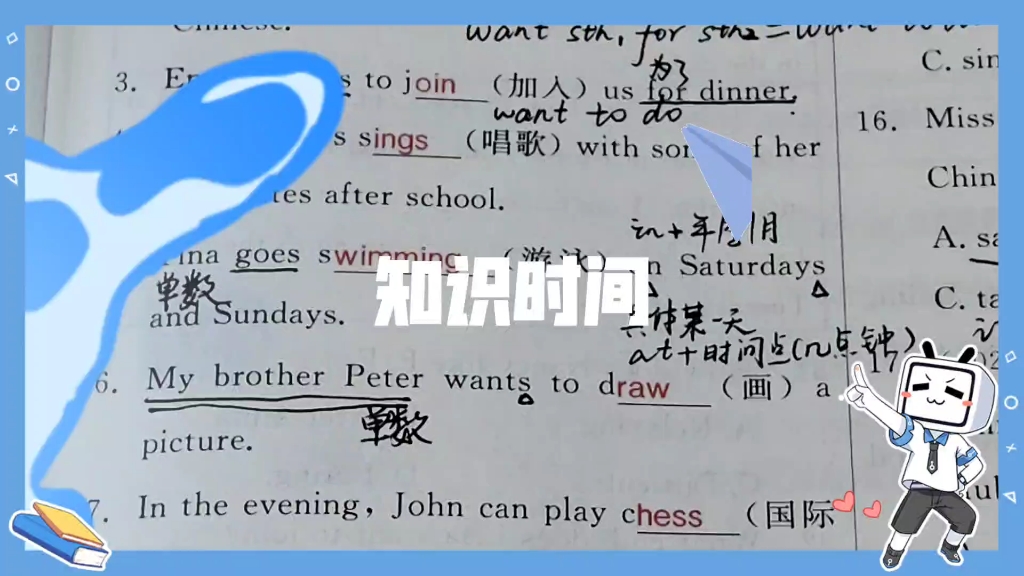 Chinese.
want sth, for sth2 =
为了
3. to join （加入）us for dinner.
want to do
sings （唱歌）with her
after school.
in + 年
goes swimming （游泳） Saturdays
单数
and Sundays.
知识时间
具体某一天
at+时间点(几点钟)
6. My brother Peter wants to draw （画）a
单数
picture.
7. In the evening, John can play chess （国际
C. sin
16. Miss
Chin
A. sa
C. ta
17